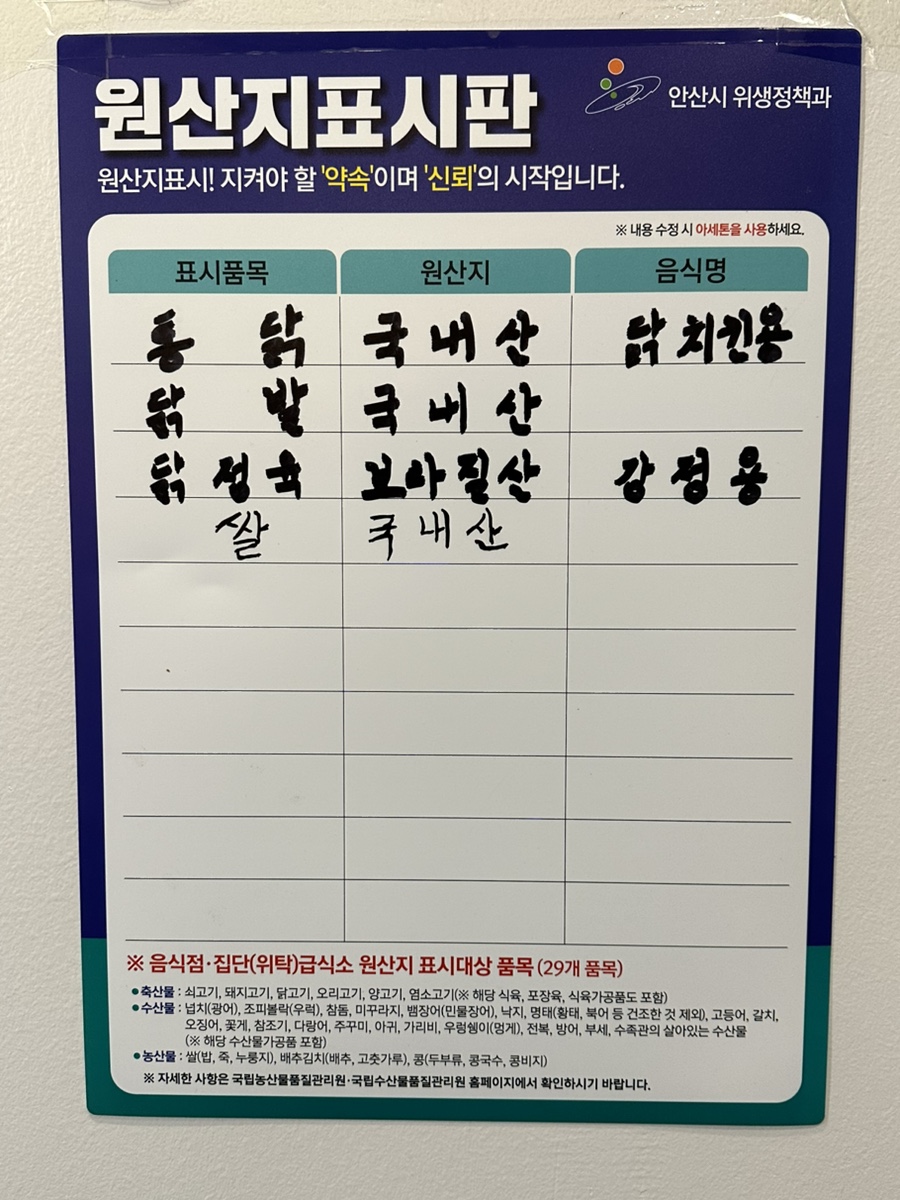 원산지표시판
안산시 위생정책과
원산지표시! 지켜야 할 '약속'이며 '신뢰'의 시작입니다.
※ 내용 수정 시 아세톤을 사용하세요.
표시품목 원산지 음식명
통 닭 국내산 닭치킨용
닭 발 국내산
닭정육 브라질산 강정용
쌀 국내산
※ 음식점·집단(위탁)급식소 원산지 표시대상 품목 (29개 품목)
●축산물 : 쇠고기, 돼지고기, 닭고기, 오리고기, 양고기, 염소고기(※ 해당 식육, 포장육, 식육가공품도 포함)
●수산물 : 넙치(광어), 조피볼락(우럭), 참돔, 미꾸라지, 뱀장어(민물장어), 낙지, 명태(황태, 북어 등 건조한 것 제외), 고등어, 갈치,
오징어, 꽃게, 참조기, 다랑어, 주꾸미, 아귀, 가리비, 우렁쉥이(멍게), 전복, 방어, 부세, 수족관의 살아있는 수산물
(※ 해당 수산물가공품 포함)
●농산물 : 쌀(밥, 죽, 누룽지), 배추김치(배추, 고춧가루), 콩(두부류, 콩국수, 콩비지)
※ 자세한 사항은 국립농산물품질관리원·국립수산물품질관리원 홈페이지에서 확인하시기 바랍니다.